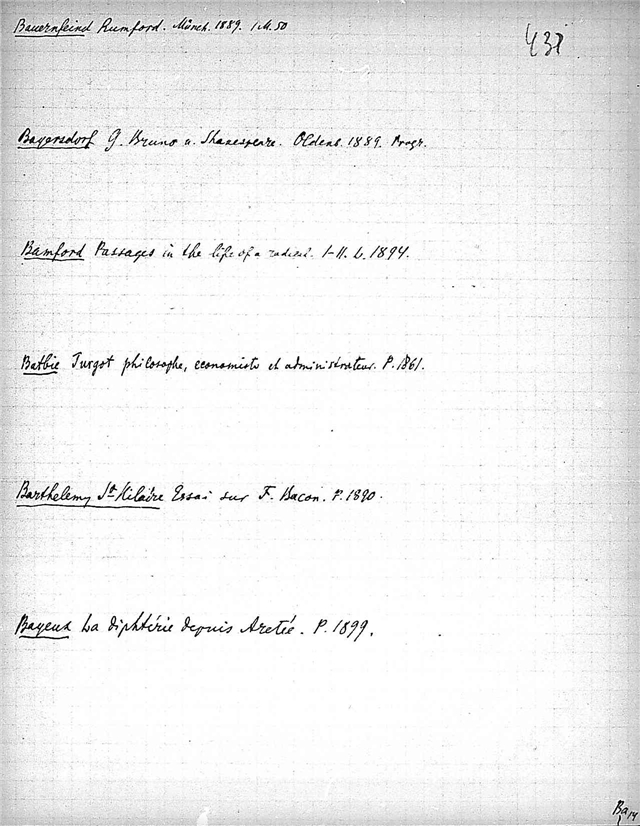 Bauernfeind Rumford. Münch. 1889. 1 M. 50
Bayersdorf G. Bruno u. Shakespeare. Oldenb. 1889. Progr.
Bamford Passages in the life of a radical. I-II. L. 1894.
Batbie Turgot philosophe, economiste et administrateur. P. 1861.
Barthelemy St Hilaire Essai sur F. Bacon. P. 1890.
Bayeux La diphtérie depuis Aretée. P. 1899.
Ba 14